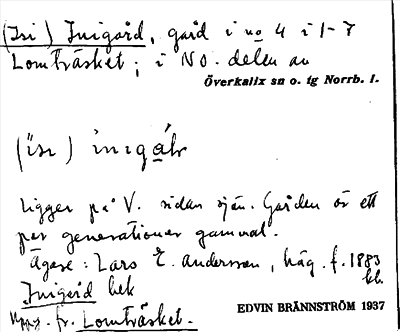 (Isi) Inigård, gård i no 4 i 1-7
Lomträsket; i NO. delen av
Överkalix sn o. tg Norrb. l.
Ligger på V. sidan sjön. Gården är ett
par generationer gammal.
Ägare: Lars E. Andersson, häg. f. 1883
Inigård bek
Uppg. fr. Lomträsket.
EDVIN BRÄNNSTRÖM 1937